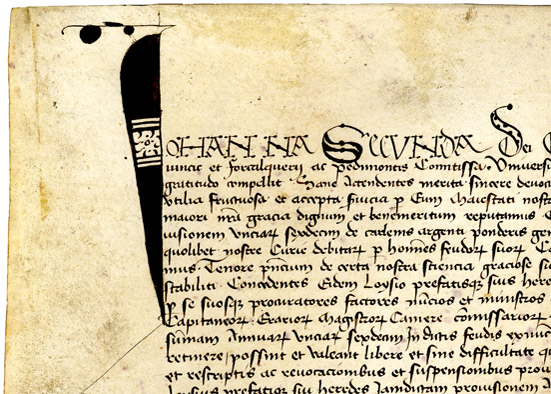 IOHANNA SECVNDA Dei
uincie et forcalquerii ac pedimontis Comitissa. Vniuersi
gratitudo compellit Sane Attendentes merita sincere deuoc
vtilia fructuosa et accepta seruicia p Eum Maiestati nost
maiori nra gracia dignum et benemeritum reputamus
uisionem vnciar sexdecim de carlenis argenti ponderis gen
quolibet nostre Curie debitar p homines feudor suor
mus. Tenore pncium de certa nostra sciencia graciose
stabiliti Concedentes Eidem Loysio prefatisq suis here
p se suosq procuratores factores nuncios et ministros
Capitaneor Erarior Magistror Camere comissarior
sumam Annuar vnciar sexdecim In dictis feudis
retinere possint et valeant libere et sine difficultate
et rescriptis ac reuocacionibus et suspensionibus
prefatior suis heredes Iamdictam prouisionem